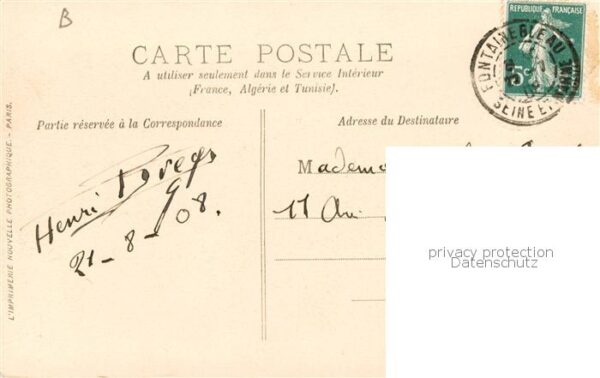 B
CARTE POSTALE
A utiliser seulement dans le Service Intérieur
(France, Algérie et Tunisie).
REPUBLIQUE FRANÇAISE
5c
FONTAINEBLEAU
SEINE ET
Partie réservée à la Correspondance
Adresse du Destinataire
Henri
21-8-08.
Madem
17
privacy protection
Datenschutz
L'IMPRIMERIE NOUVELLE PHOTOGRAPHIQUE - PARIS.